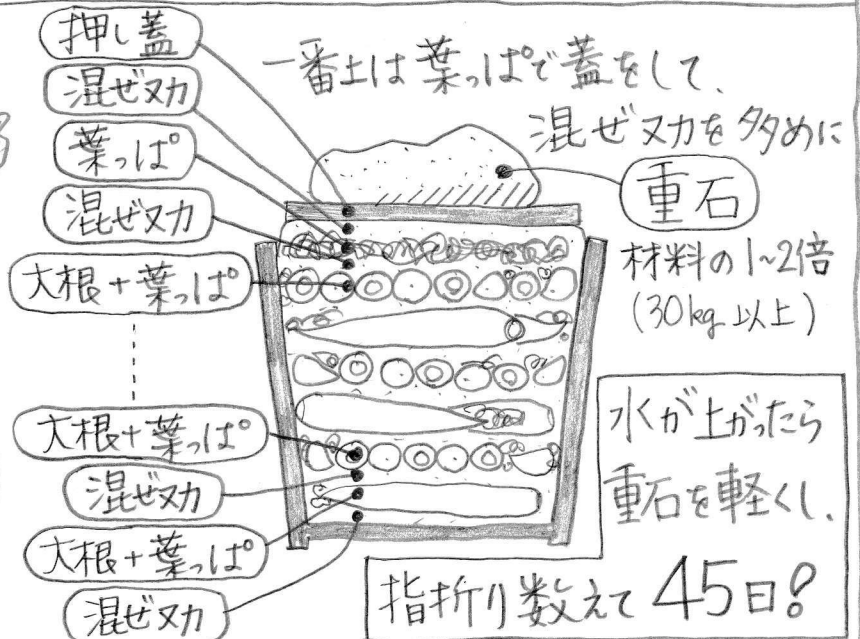 押し蓋
混ぜヌカ
葉っぱ
混ぜヌカ
大根+葉っぱ
大根+葉っぱ
混ぜヌカ
大根+葉っぱ
混ぜヌカ
一番上は葉っぱで蓋をして、
混ぜヌカを多めに
重石
材料の1~2倍
(30kg以上)
水が上がったら
重石を軽くし、
指折り数えて45日!